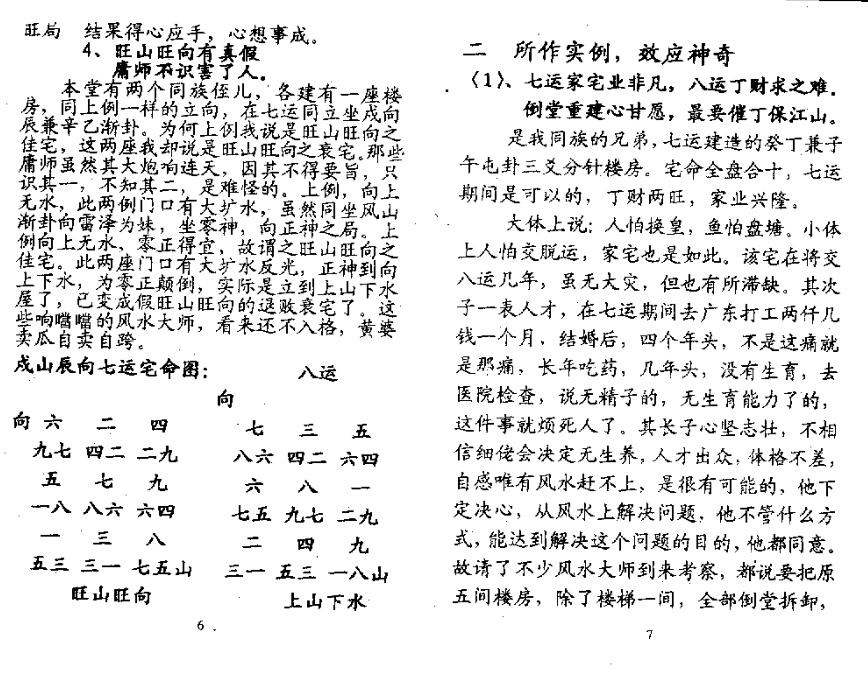 旺局　结果得心应手，心想事成。
4、旺山旺向有真假
庸师不识害了人。
本堂有两个同族侄儿，各建有一座楼
房，同上例一样的立向，在七运同立坐戌向
辰兼辛乙渐卦。为何上例我说是旺山旺向之
住宅，这两座我却说是旺山旺向之衰宅。那些
庸师虽然其大炮响连天，因其不得要旨，只
识其一，不知其二，是难怪的。上例，向上
无水，此两例门口有大圹水，虽然同坐风山
渐卦向雷泽为妹，坐零神，向正神之局。上
例向上无水，零正得宜，故谓之旺山旺向之
住宅。此两座门口有大圹水反光，正神到向
上下水，为零正颠倒，实际是立到上山下水
屋了，已变成假旺山旺向的退败衰宅了。这
些响噹噹的风水大师，看来还不入格，黄婆
卖瓜自卖自跨。
戌山辰向七运宅命图：　　八运
向
向 六　二　四　　七　三　五
九七 四二 二九　　八六 四二 六四
五　七　九　　六　八　一
一八 八六 六四　　七五 九七 二九
一　三　八　　二　四　九
五三 三一 七五山　　三一 五三 一八山
旺山旺向　　上山下水
6
二　所作实例，效应神奇
（1）、七运家宅业非凡，八运丁财求之难．
倒堂重建心甘愿，最要催丁保江山。
是我同族的兄弟，七运建造的癸丁兼子
午屯卦三爻分针楼房。宅命全盘合十，七运
期间是可以的，丁财两旺，家业兴隆。
大体上说：人怕换皇，鱼怕盘塘。小体
上人怕交脱运，家宅也是如此。该宅在将交
八运几年，虽无大灾，但也有所滞缺。其次
子一表人才，在七运期间去广东打工两仟几
钱一个月，结婚后，四个年头，不是这痛就
是那痛，长年吃药，几年头，没有生育，去
医院检查，说无精子的，无生育能力了的，
这件事就烦死人了。其长子心坚志壮，不相
信细佬会决定无生养，人才出众，体格不差，
自感唯有风水赶不上，是很有可能的，他下
定决心，从风水上解决问题，他不管什么方
式，能达到解决这个问题的目的，他都同意。
故请了不少风水大师到来考察，都说要把原
五间楼房，除了楼梯一间，全部倒堂拆卸，
7